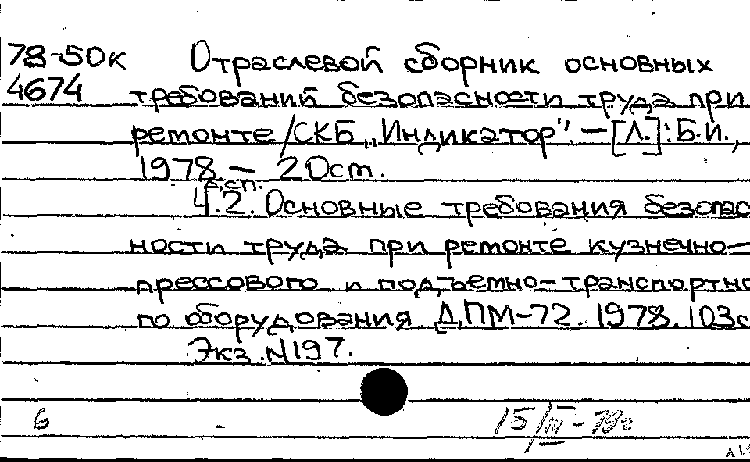 78-50к Отраслевой сборник основных
4674 требований безопасности труда при
ремонте/СКБ „Индикатор”. — [Л.]: Б.И.,
1978 — 20см.
д.сп.
Ч.2. Основные требования безопас
ности труда при ремонте кузнечно-
прессового и подъемно-транспортно
го оборудования ДПМ-72. 1978. 103с
Экз. №197.
6 15/IV-78г